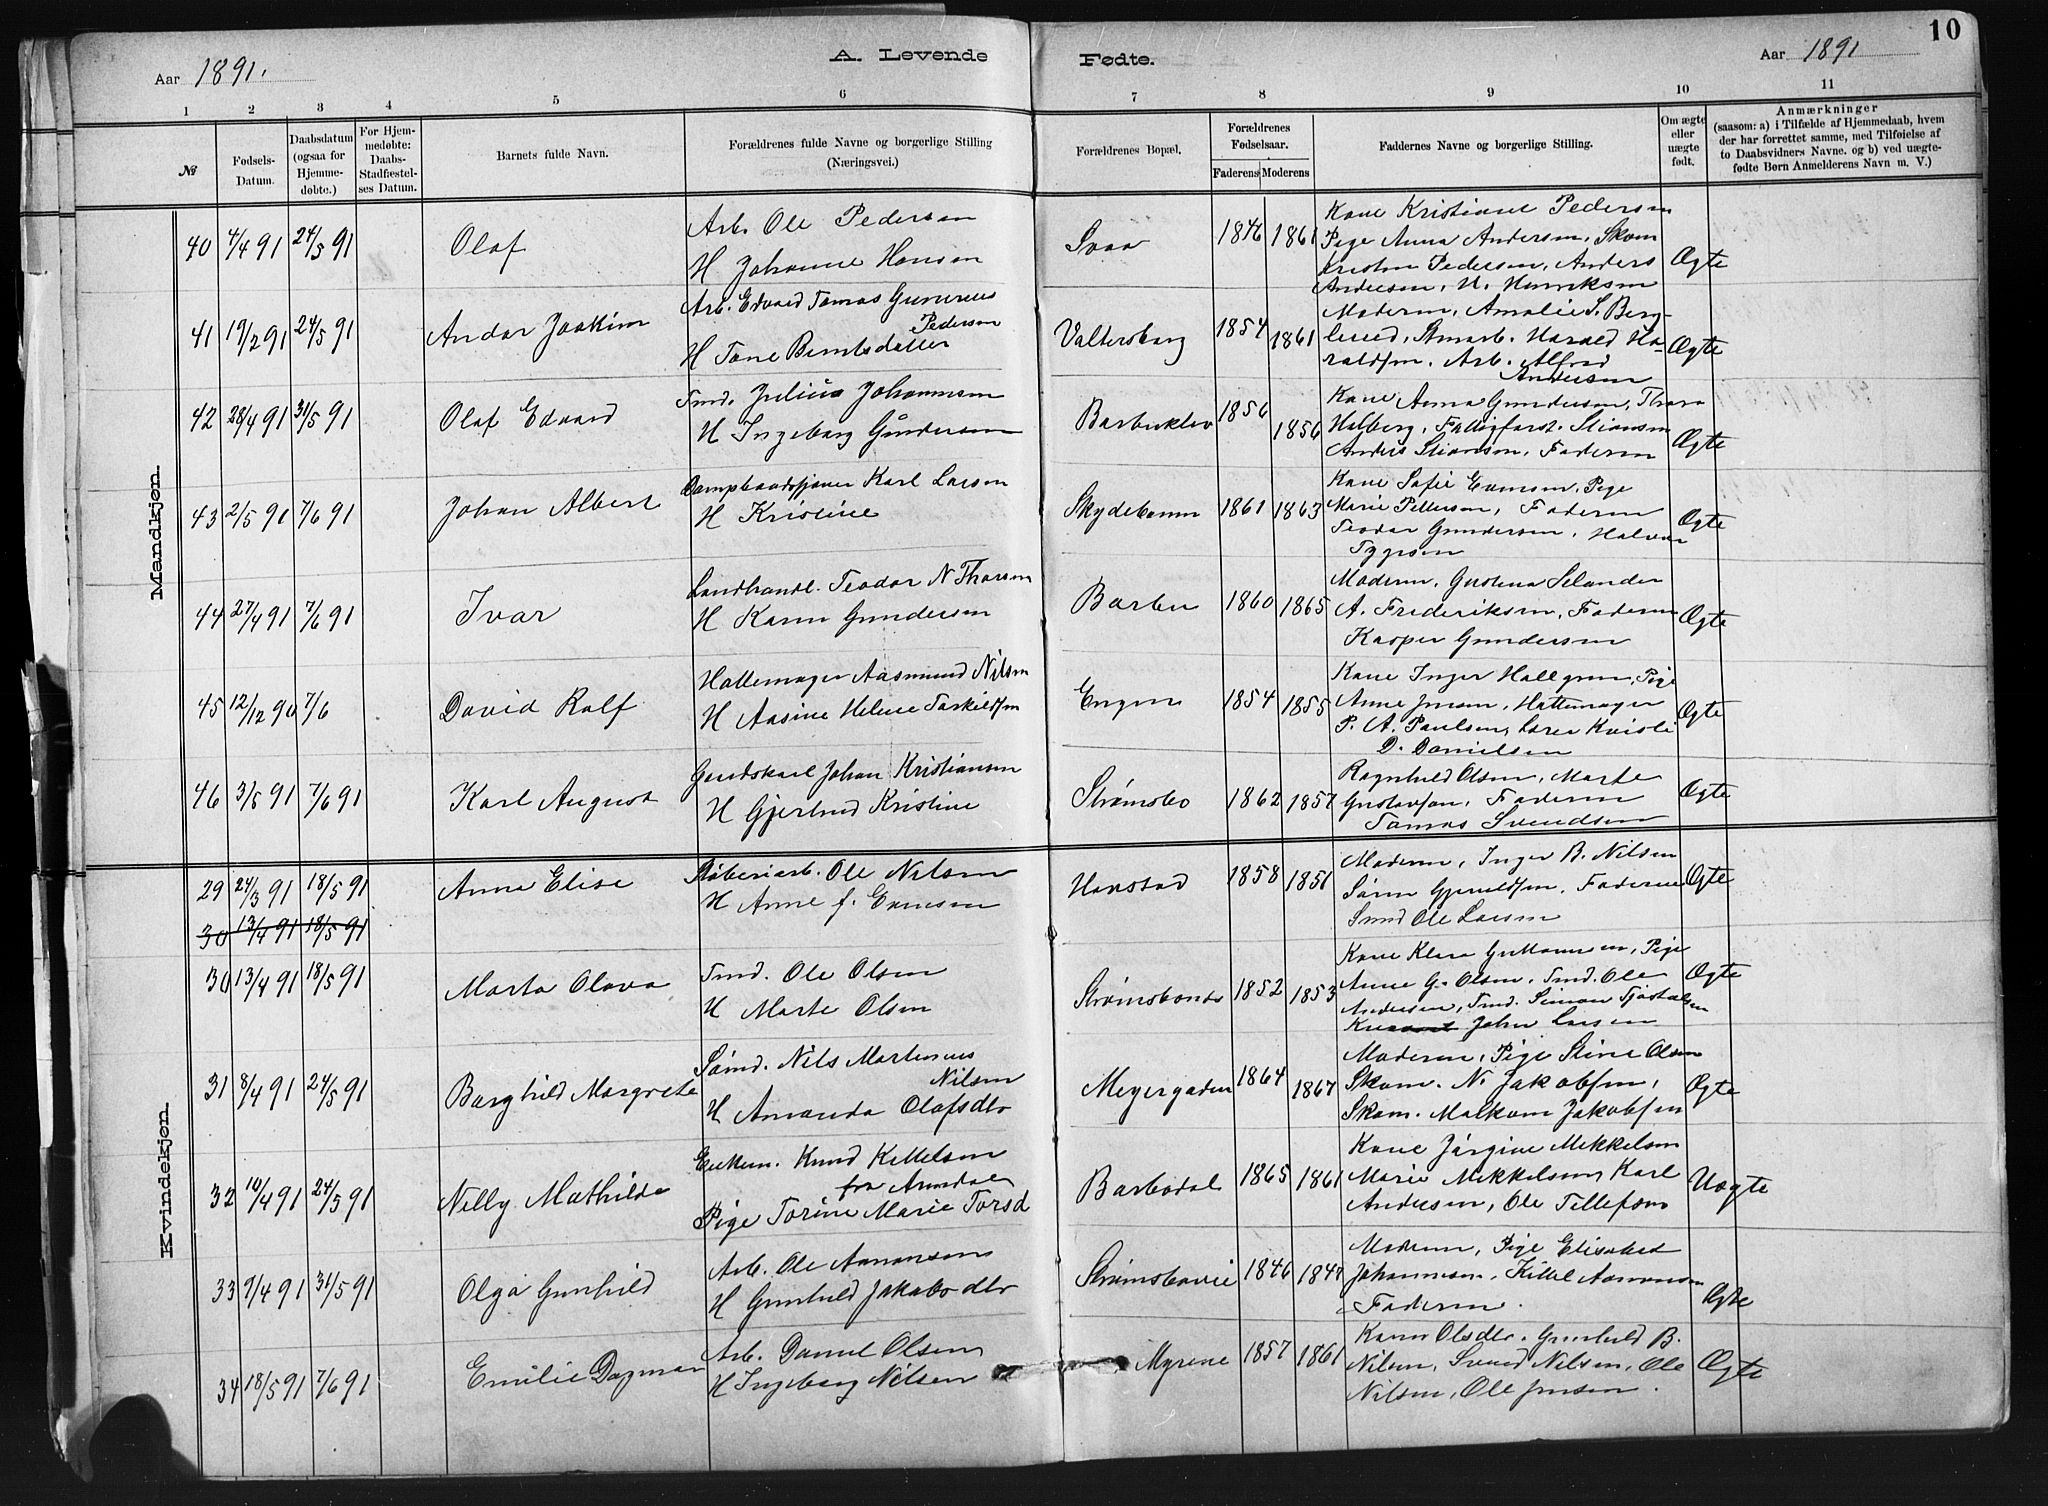 10
Aar 1891.
A. Levende Fødte.
Aar 1891
1 2 3 4 5 6 7 8 9 10 11
№
Fødsels-Datum.
Daabsdatum (ogsaa for Hjemme-døbte.)
For Hjem-medøbte: Daabs-Stadfæstel-ses Datum.
Barnets fulde Navn.
Forældrenes fulde Navne og borgerlige Stilling (Næringsvei.)
Forældrenes Bopæl.
Forældrenes Fødselsaar.
Faderens Moderens
Faddernes Navne og borgerlige Stilling.
Om ægte eller uægte født.
Anmærkninger
(saasom: a) i Tilfælde af Hjemmedaab, hvem
der har forrettet samme, med Tilføielse af
to Daabsvidners Navne. og b) ved uægte-
fødte Børn Anmelderens Navn m. V.)
Mandkjøn.
40 4/4 91 24/5 91 Olaf
Arb. Ole Pedersen
H Johanne Hansen
Svaa 1846 1861
Kone Kristiane Pedersen
Pige Anna Andersen, Skom
Kristen Pedersen, Anders
Andersen, H. Henriksen
Ægte
41 19/2 91 24/5 91 Andor Joakim
Arb. Edvard Tomas Gunerius
Pedersen
H Tone Berntsdatter
Valtersborg 1854 1861
Moderen, Amalie S. Berg-
lund, Stenarb. Harald Ha-
raldsen, Arb. Alfred
Andersen
Ægte
42 28/4 91 31/5 91 Olaf Edvard
Tmd. Julius Johannesen
H Ingeborg Gundersen
Barbuklev 1856 1856
Kone Anna Gundersen, Thora
Holberg, Stiansen
Anders Stiansen, Faderen
Ægte
43 2/5 91 7/6 91 Johan Albert
Karl Larsen
H Kristine
Skydebanen 1861 1863
Kone Sofie Evensen, Pige
Marie Pettersen, Faderen
Teodor Gundersen, Halvor
Ægte
44 27/4 91 7/6 91 Ivar
Landhandl. Teodor N Thorsen
H Karen Gundersen
Barbu 1860 1865
Moderen, Gustava Selander
A. Frederiksen, Faderen
Kasper Gundersen
Ægte
45 12/12 90 7/6 David Rolf
Hattemager Aasmund Nilsen
H Aasine Helene Torkildsen
Engene 1854 1855
Kone Inger Hallgren, Pige
Anne Jensen, Hattemager
P. A. Paulsen, Lars Kvisli
D. Danielsen
Ægte
46 3/5 91 7/6 91 Karl August
Gaardskarl Johan Kristiansen
H Gjertrud Kristine
Strømsbo 1862 1857
Ragnhild Olsen, Marte
Gustavsen, Faderen
Tomas Svendsen
Ægte
Kvindekjøn.
29 24/3 91 18/5 91 Anna Elise
Støberiarb. Ole Nilsen
H Anne f. Evensen
Havstad 1858 1851
Moderen, Inger B. Nilsen
Søren Gjeruldsen, Faderen
Smed Ole Larsen
Ægte
30 13/4 91 18/5 91
30 13/4 91 18/5 91 Marta Olava
Tmd. Ole Olsen
H Marte Olsen
Strømsbones 1852 1853
Kone Klara Guttormsen, Pige
Anne G. Olsen, Tmd. Ole
Andersen, Tmd. Simon Tjøstolsen
John Larsen
Ægte
31 8/4 91 24/5 91 Borghild Margrete
Sømd. Nils Martinius
Nilsen
H Amanda Olafsdtr
Meyergaden 1864 1867
Moderen, Pige Stine Olsen
Skom. N. Jakobsen,
Skom. Malkom Jakobsen
Ægte
32 10/4 91 24/5 91 Nelly Mathilde
Enkem. Knud Kittelsen
fra Arendal
Pige Torine Marie Torsd
Barbodal 1865 1861
Kone Jørgine Mikkelsen
Marie Mikkelsen, Karl
Andersen, Ole Tellefsen
Uægte
33 9/4 91 31/5 91 Olga Gunhild
Arb. Ole Aanonsen
H Gunhild Jakobsdtr
Strømsbovei 1846 1847
Moderen, Pige Elisabed
Johannesen, Kittel Aanonsen
Faderen.
Ægte
34 18/5 91 7/6 91 Emilie Dagmar
Arb. Daniel Olsen
H Ingeborg Nilsen
Myrene 1857 1861
Karen Olsdtr. Gunhild B.
Nilsen, Svend Nilsen, Ole
Nilsen, Ole Jensen.
Ægte